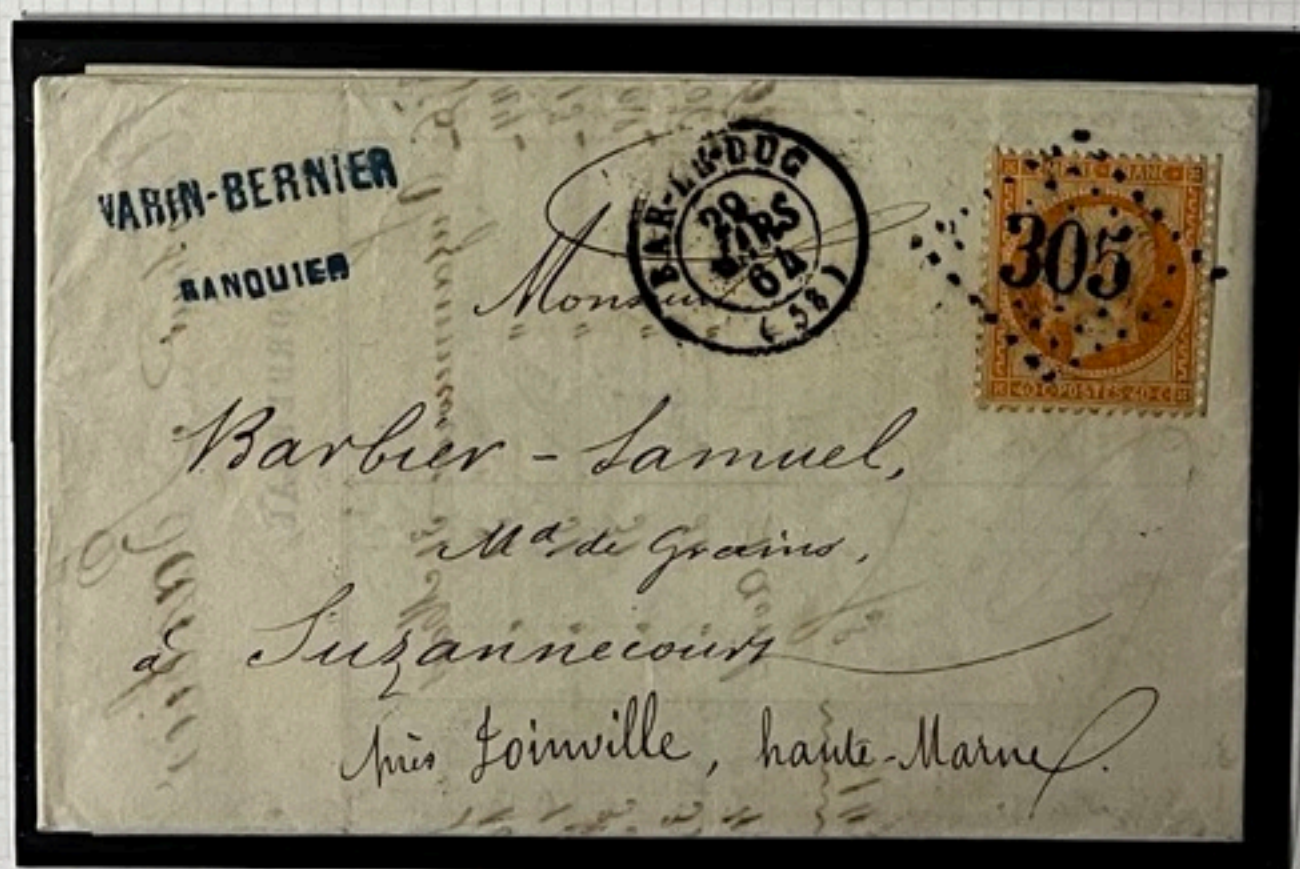 VARIN-BERNIER
BANQUIER
BAR-LE-DUC
29
MARS
64
(58)
305
EMPIRE FRANC
40·C·POSTES·40·C
Monsieur
Barbier-Samuel,
Md de Grains,
à Suzannecourt
près Joinville, haute-Marne.